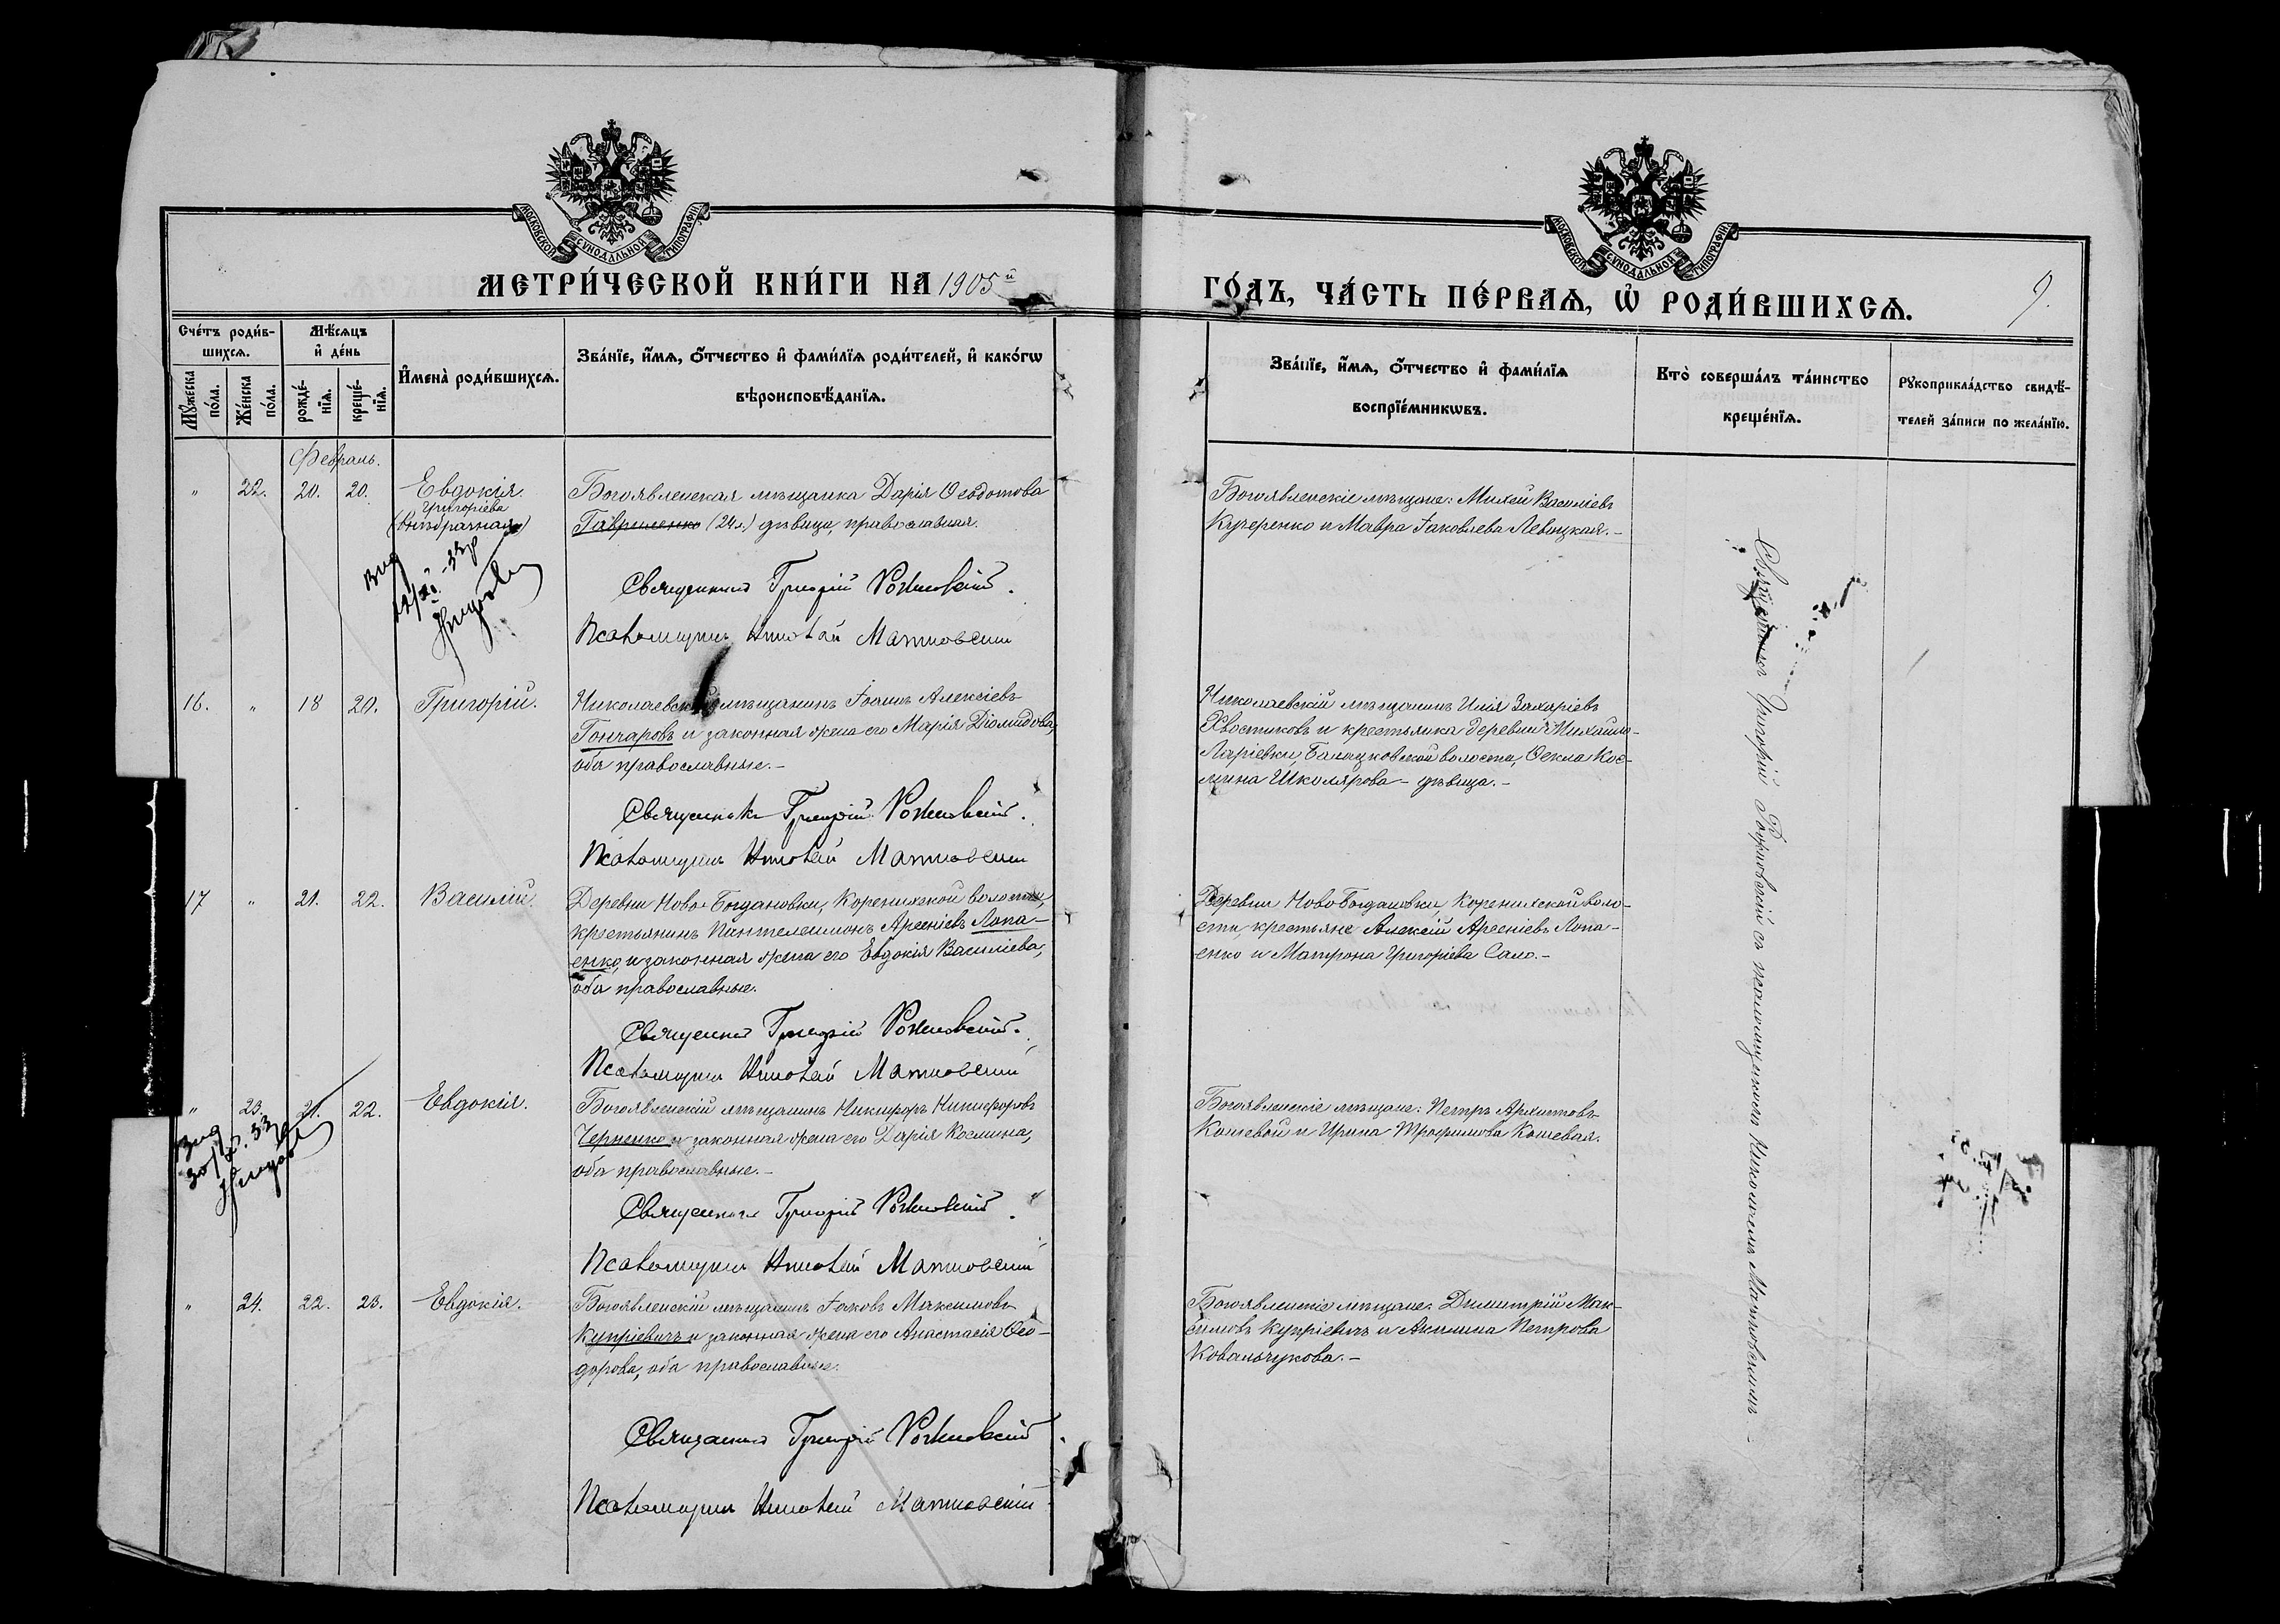 МОСКОВСКОЙ СѴНОДАЛЬНОЙ ТИПОГРАФІИ
МОСКОВСКОЙ СѴНОДАЛЬНОЙ ТИПОГРАФІИ
МЕТРИ́ЧЕСКОЙ КНИ́ГИ НА 1905й
ГО́ДЪ, ЧА́СТЬ ПЕ́РВАѦ, Ѡ҆ РОДИ́ВШИХСѦ.
9.
Сче́тъ роди́в-
шихсѧ.
Мѣ́сѧцъ
и҆ де́нь
Мꙋ́жеска
по́ла.
Же́нска
по́ла.
рожде́-
нїѧ.
креще́-
нїѧ.
И҆мена̀ роди́вшихсѧ.
Зва́нїе, и҆́мѧ, ѻ҆́тчество и҆ фами́лїѧ роди́телей, и҆ како́гѡ
вѣроисповѣ́данїѧ.
Зва́нїе, и҆́мѧ, ѻ҆́тчество и҆ фами́лїѧ
воспрїе́мникѡвъ.
Кто̀ соверша́лъ та́инство
креще́нїѧ.
Рꙋкоприкла́дство свидѣ́-
телей за́писи по жела́нїю.
Февраль.
" 22. 20. 20. Евдокія.
Григоріева
(Внѣбрачная)
Богоявленская мѣщанка Дарія Ѳеодотова
Гавриленко (24 л.) дѣвица, православная.
Священникъ Григорій
Псаломщикъ Николай Матковскій
Богоявленскіе мѣщане: Михей Василіевъ
Кучеренко и Мавра Іаковлева Левицкая.-
16. " 18 20. Григорій.
Николаевскій мѣщанинъ Іоаннъ Алексіевъ
Гончаровъ и законная жена его Марія Діомидова,
оба православные.-
Священникъ Григорій
Псаломщикъ Николай Матковскій
Николаевскій мѣщанинъ Илія Захаріевъ
Хвостиковъ и крестьянка деревни Михайло-
Ларіевки, Балацковской волости, Ѳекла Кос-
мина Школярова - дѣвица.-
17 " 21. 22. Василій.
Деревни Ново-Богдановки, Корениxской волости,
крестьянинъ Пантелеимонъ Арсеніевъ Лопа-
енко, и законная жена его Евдокія Василіева,
оба православные.
Священникъ Григорій
Псаломщикъ Николай Матковскій
Деревни Ново Богдановки, Коренихской воло-
сти, крестьяне Алексій Арсеніевъ Лопа-
енко и Матрона Григоріева Сало.-
" 23. 21. 22. Евдокія.
Богоявленскій мѣщанинъ Никифоръ Никифоровъ
Черненко и законная жена его Дарія Космина,
оба православные.-
Священникъ Григорій
Псаломщикъ Николай Матковскій
Богоявленскіе мѣщане: Петръ Архиповъ
Кошевой и Ирина Трофимова Кошевая.
" 24. 22. 23. Евдокія.
Богоявленскій мѣщанинъ Іаковъ Максимовъ
Купріевичъ и законная жена его Анастасія Ѳео-
дорова, оба православные.
Священникъ Григорій
Псаломщикъ Николай Матковскій
Богоявленскіе мѣщане: Димитрій Мак-
симовъ Купріевичъ и Акилина Петрова
Ковальчукова.-
Священникъ Григорій съ псаломщикомъ Николаемъ Матковскимъ.-